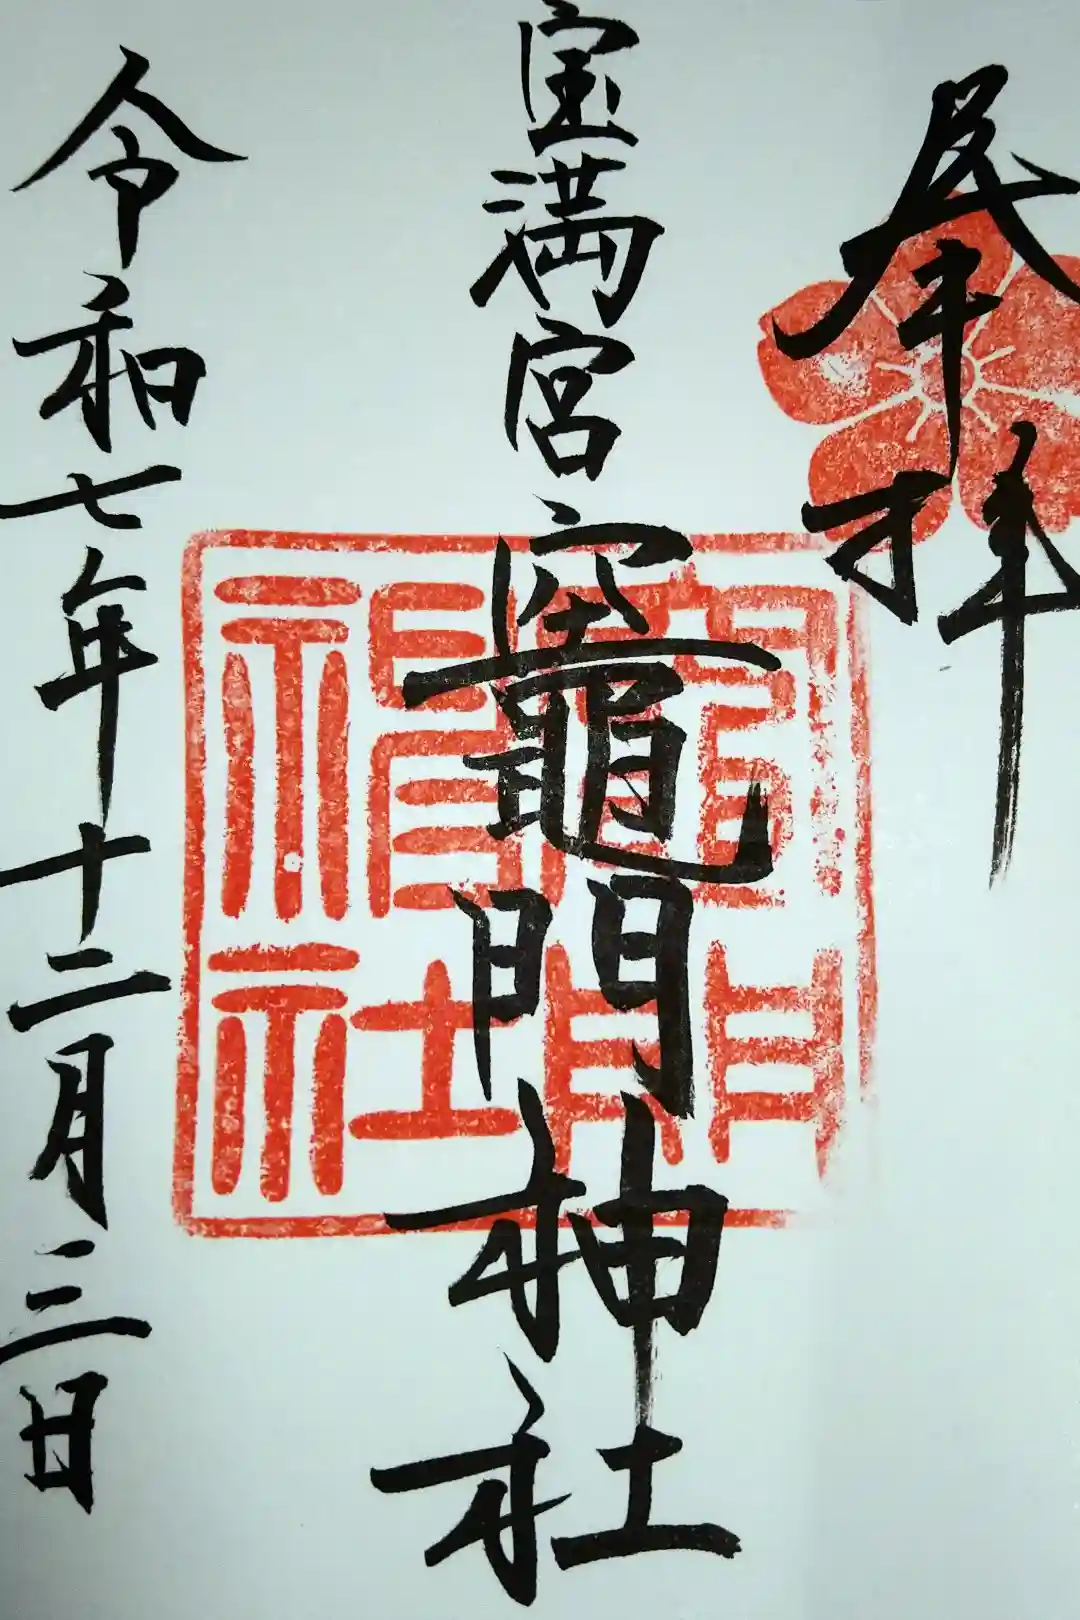 奉拝
宝満宮竈門神社
令和七年十二月三日
竈門
神社